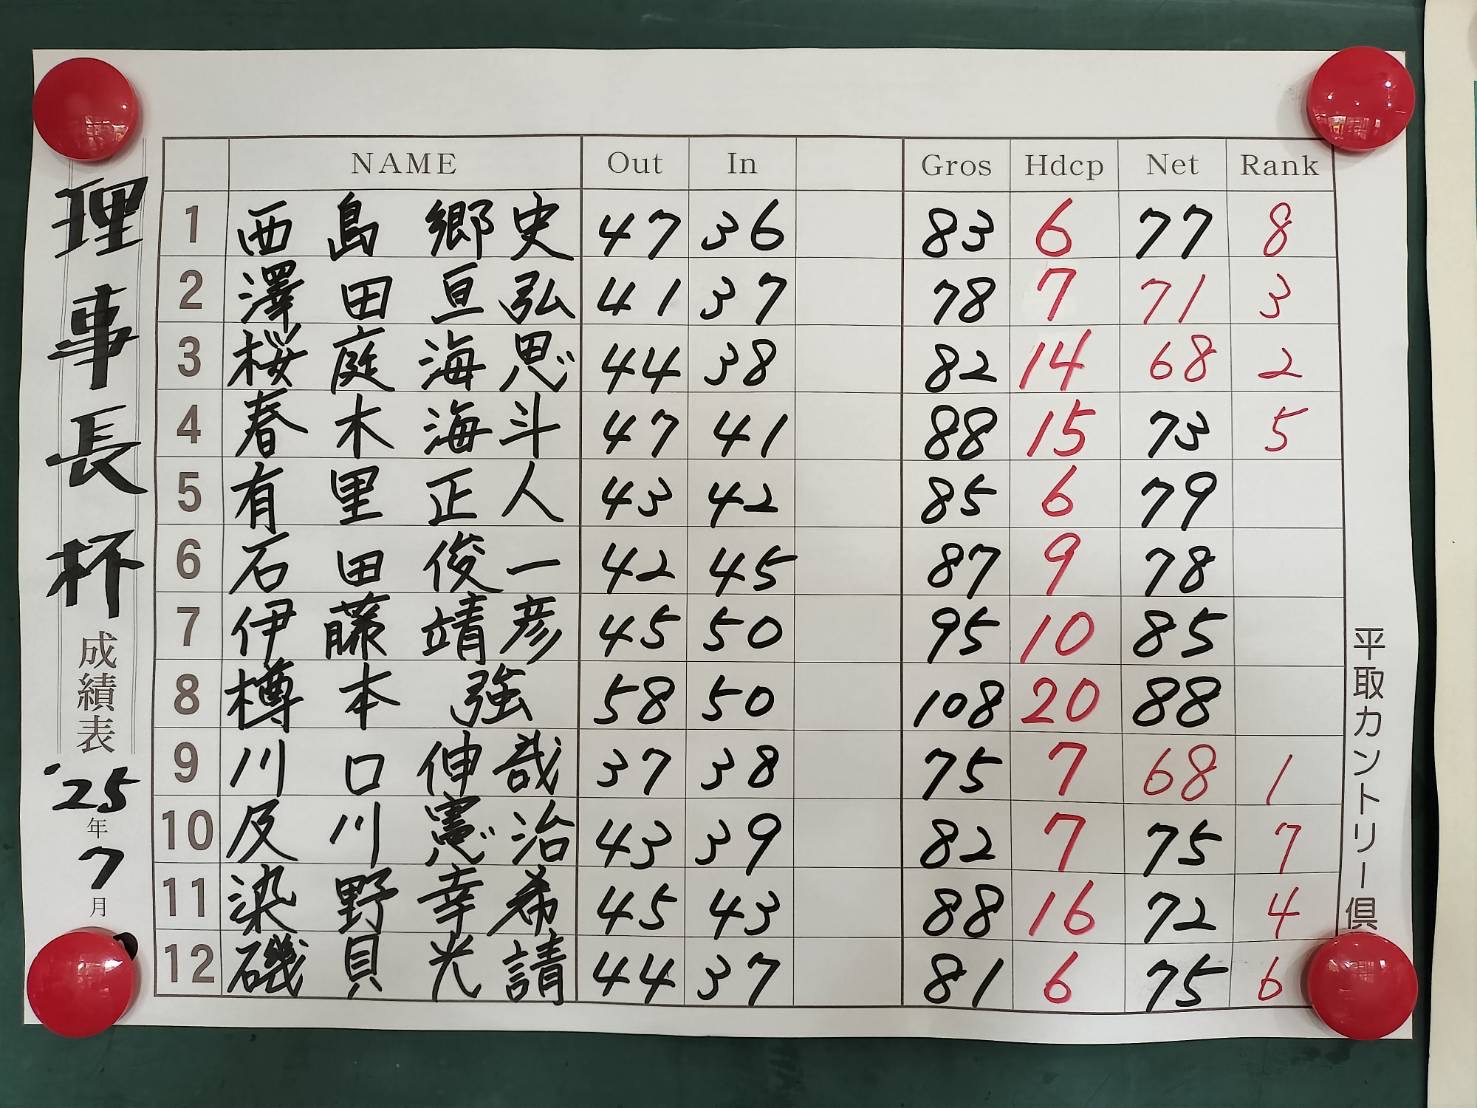 理事長杯 成績表 '25年 7月
NAME Out In Gros Hdcp Net Rank
1 西島郷史 47 36 83 6 77 8
2 澤田亘弘 41 37 78 7 71 3
3 桜庭海思 44 38 82 14 68 2
4 春木海斗 47 41 88 15 73 5
5 有里正人 43 42 85 6 79
6 石田俊一 42 45 87 9 78
7 伊藤靖彦 45 50 95 10 85
8 樽本強 58 50 108 20 88
9 川口伸哉 37 38 75 7 68 1
10 及川憲治 43 39 82 7 75 7
11 染野幸希 45 43 88 16 72 4
12 磯貝光請 44 37 81 6 75 6
平取カントリー倶